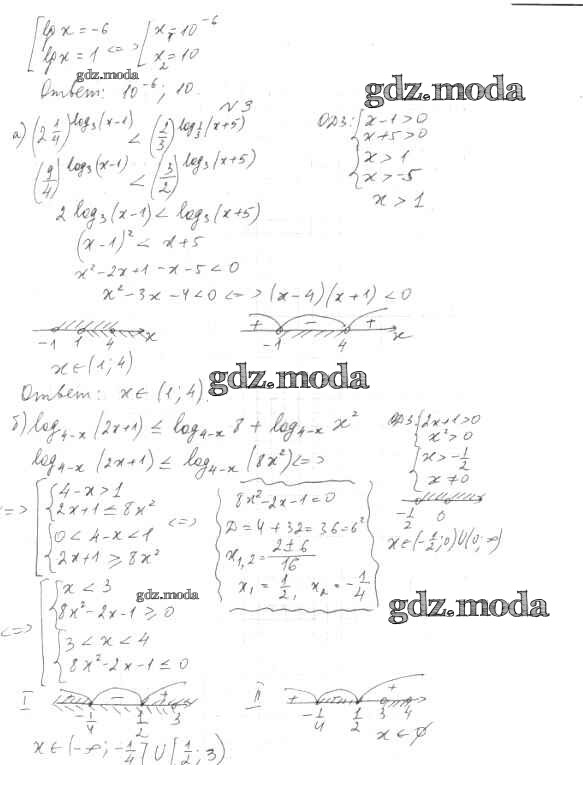 [lg x = -6
[lg x = 1 <=> [x₁ = 10⁻⁶
[x₂ = 10
gdz.moda
Ответ: 10⁻⁶; 10.
gdz.moda
N 3
а) (2 1/4)^{log₃(x-1)} < (2/3)^{log_{1/3}(x+5)}
ОДЗ: {x-1>0
{x+5>0
(9/4)^{log₃(x-1)} < (3/2)^{log₃(x+5)}
{x>1
{x>-5
x>1
2 log₃(x-1) < log₃(x+5)
(x-1)² < x+5
x²-2x+1-x-5<0
x²-3x-4<0 <=> (x-4)(x+1)<0
-1 1 4 x
+ - +
-1 4 x
x∈(1;4)
gdz.moda
Ответ: x∈(1;4).
б) log_{4-x}(2x+1) ≤ log_{4-x} 8 + log_{4-x} x²
ОДЗ: {2x+1>0
{x²>0
log_{4-x}(2x+1) ≤ log_{4-x}(8x²) <=>
{x>-1/2
{x≠0
-1/2 0
x∈(-1/2;0)∪(0;∞)
<=> [{4-x>1
{2x+1≤8x²
{0<4-x<1
{2x+1≥8x² <=>
8x²-2x-1=0
D=4+32=36=6²
x₁,₂=(2±6)/16
x₁=1/2, x₂=-1/4
gdz.moda
<=> [{x<3
{8x²-2x-1≥0
{3<x<4
{8x²-2x-1≤0
gdz.moda
I + - +
-1/4 1/2 3
II + - +
-1/4 1/2 3 4
x∈(-∞;-1/4]∪[1/2;3)
x∈∅